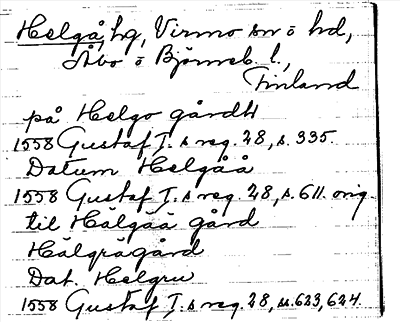 Helgå, hg, Virmo sn o hd,
Åbo o Björneb. l.,
Finland
på Helgo gårdh
1558 Gustaf I. s reg. 28, s. 335.
Datum Helgåå
1558 Gustaf I. s reg. 28, s. 611. orig.
til Hälgåå gård
Hälgrågård
Dat. Helgru
1558 Gustaf I. s reg. 28, ss. 623, 624.